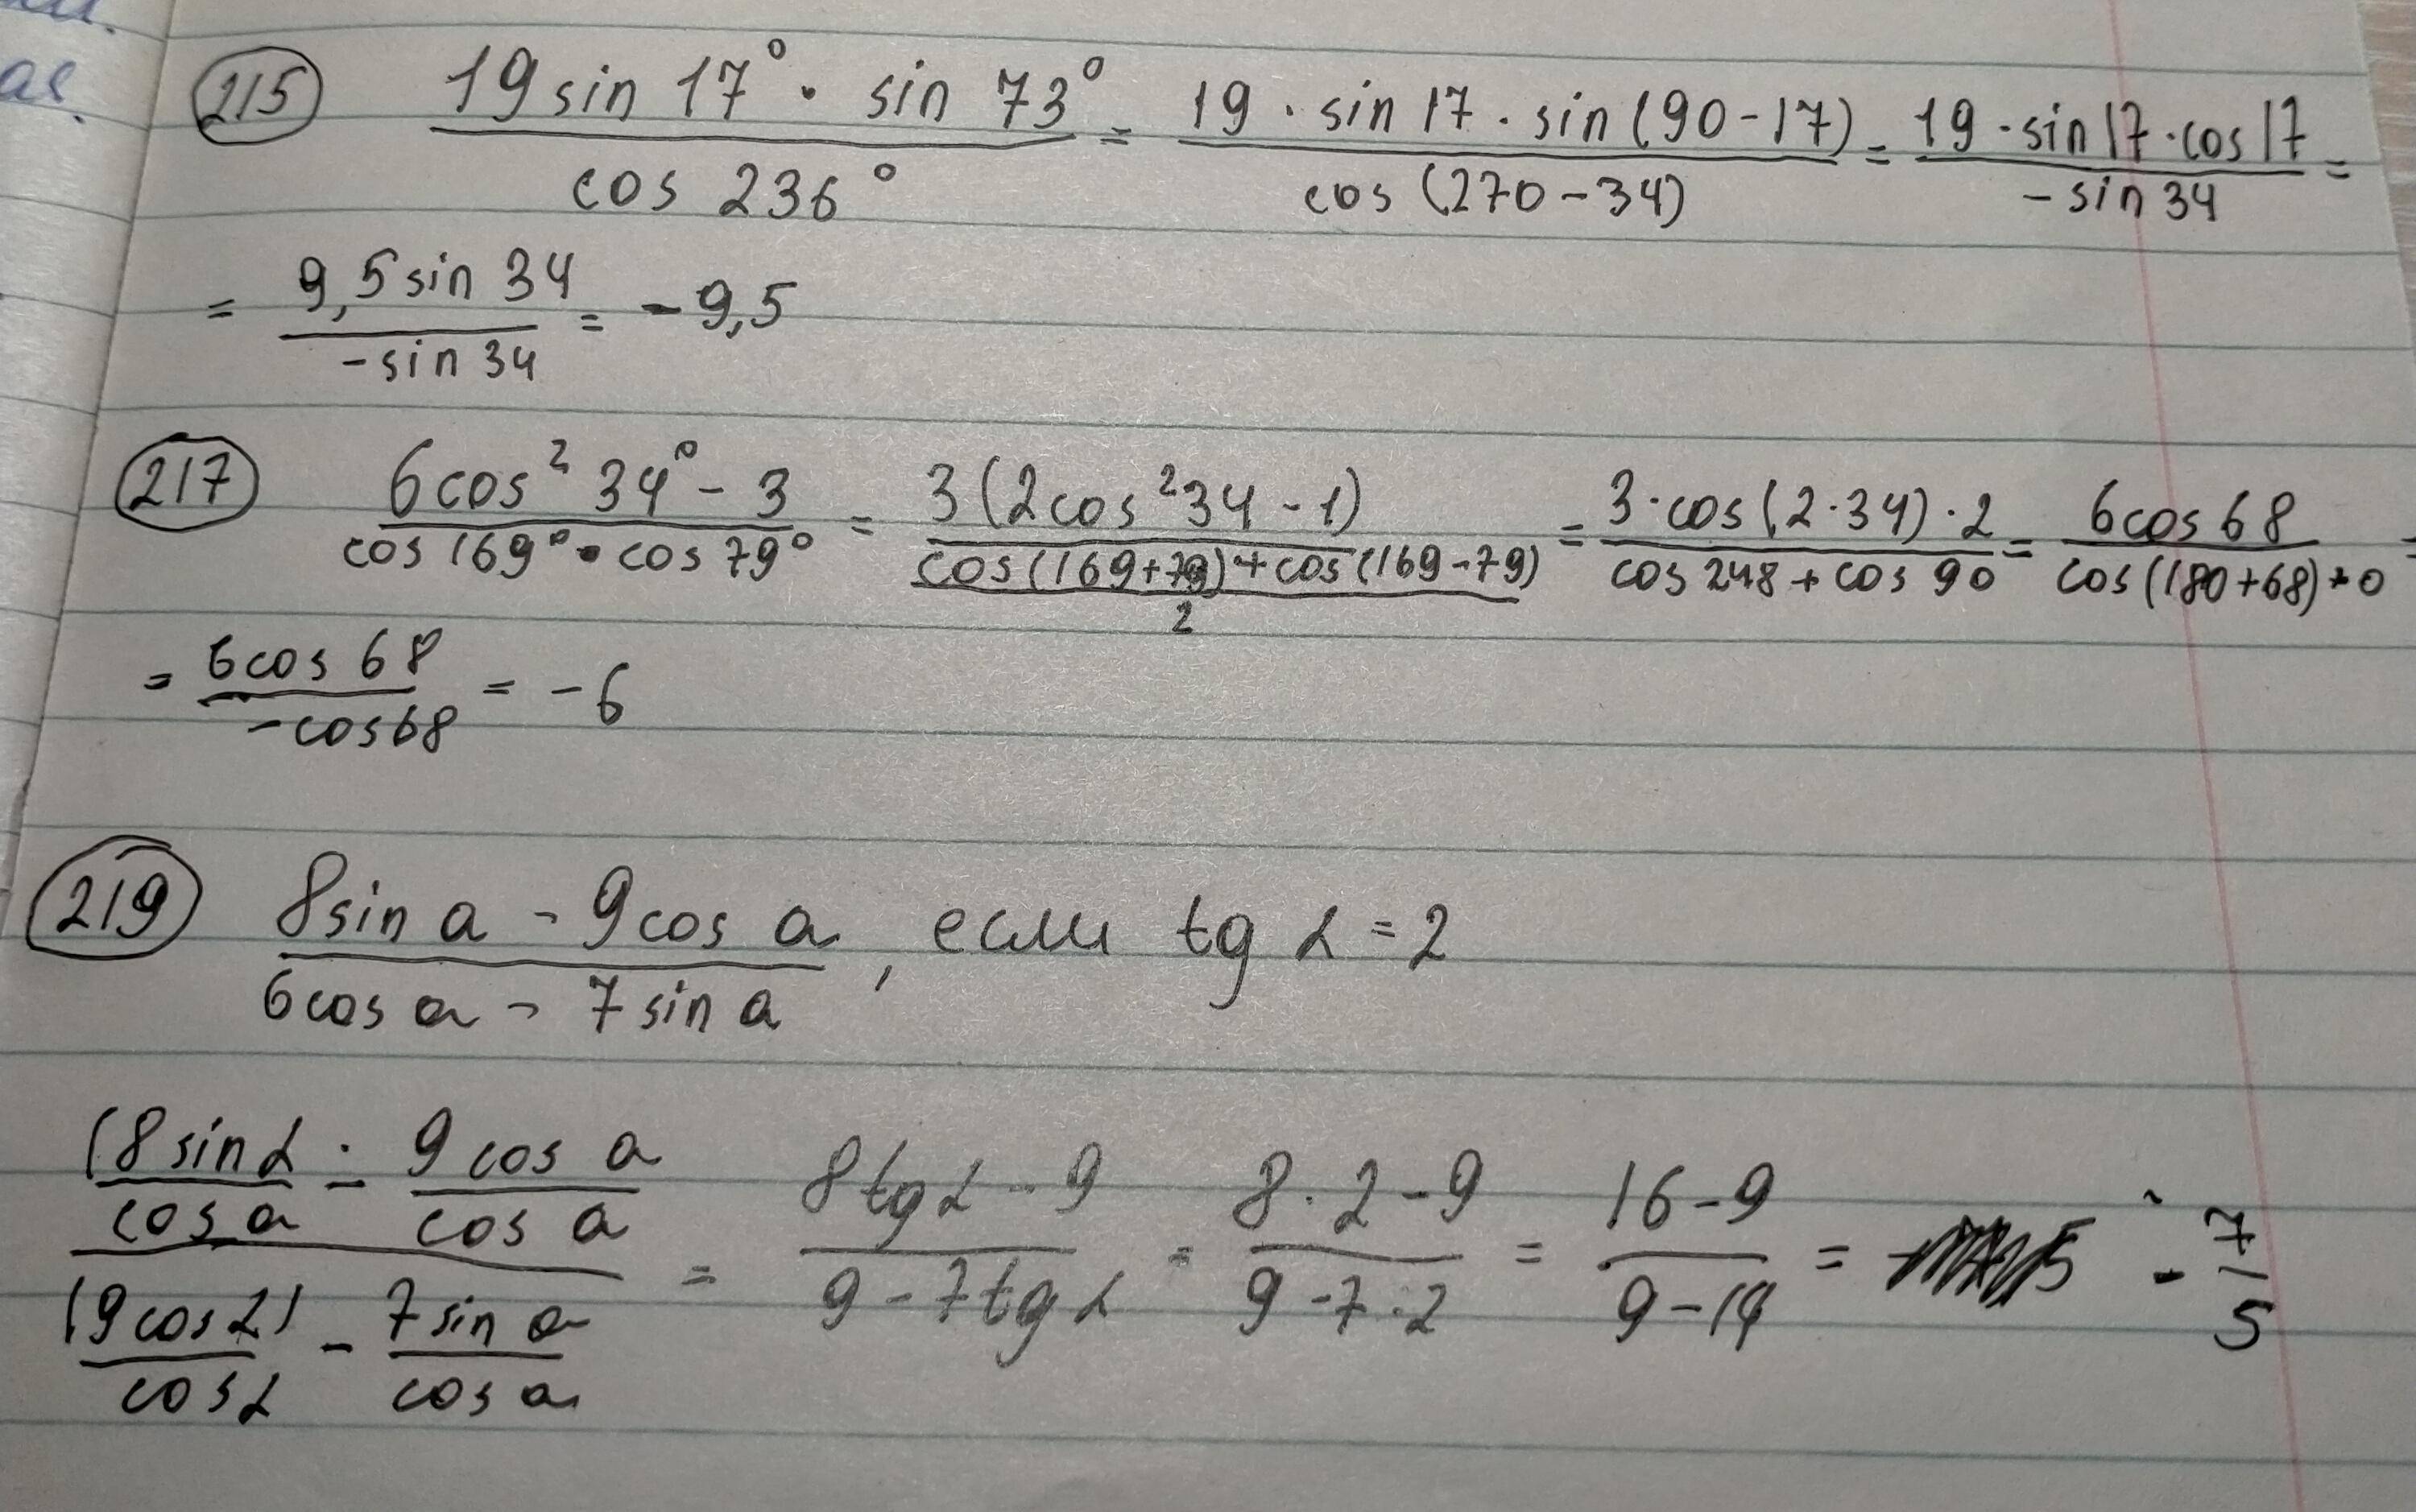 ас.
(215) 19 sin 17° · sin 73° / cos 236° = 19 · sin 17 · sin (90 - 17) / cos (270 - 34) = 19 · sin 17 · cos 17 / - sin 34 =
= 9,5 sin 34 / - sin 34 = - 9,5
(217) 6 cos² 34° - 3 / cos 169° · cos 79° = 3 (2 cos² 34 - 1) / (cos (169 + 79) + cos (169 - 79) / 2) = 3 · cos (2 · 34) · 2 / cos 248 + cos 90 = 6 cos 68 / cos (180 + 68) + 0 =
= 6 cos 68 / - cos 68 = - 6
(219) 8 sin a - 9 cos a / 6 cos a - 7 sin a , если tg α = 2
(8 sin α / cos a - 9 cos a / cos a) / ((9 cos α) / cos α - 7 sin a / cos a) = 8 tg α - 9 / 9 - 7 tg α = 8 · 2 - 9 / 9 - 7 · 2 = 16 - 9 / 9 - 14 = - 7 / 5